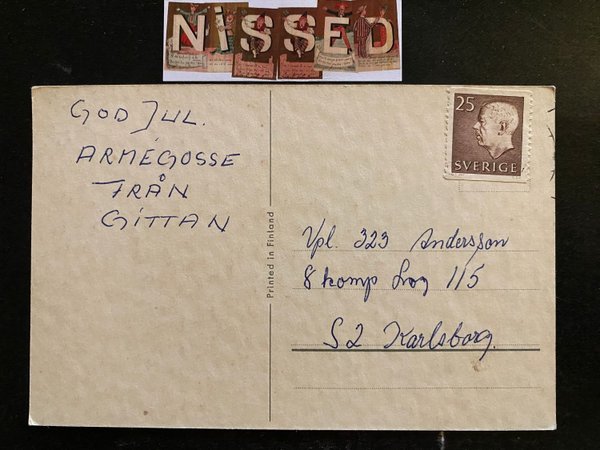 NiSSED
GOD JUL.
ARMÉGOSSE
FRÅN
GITTAN
Printed in Finland
25
SVERIGE
Vpl. 323 Andersson
8 komp Log 115
S2 Karlsborg.